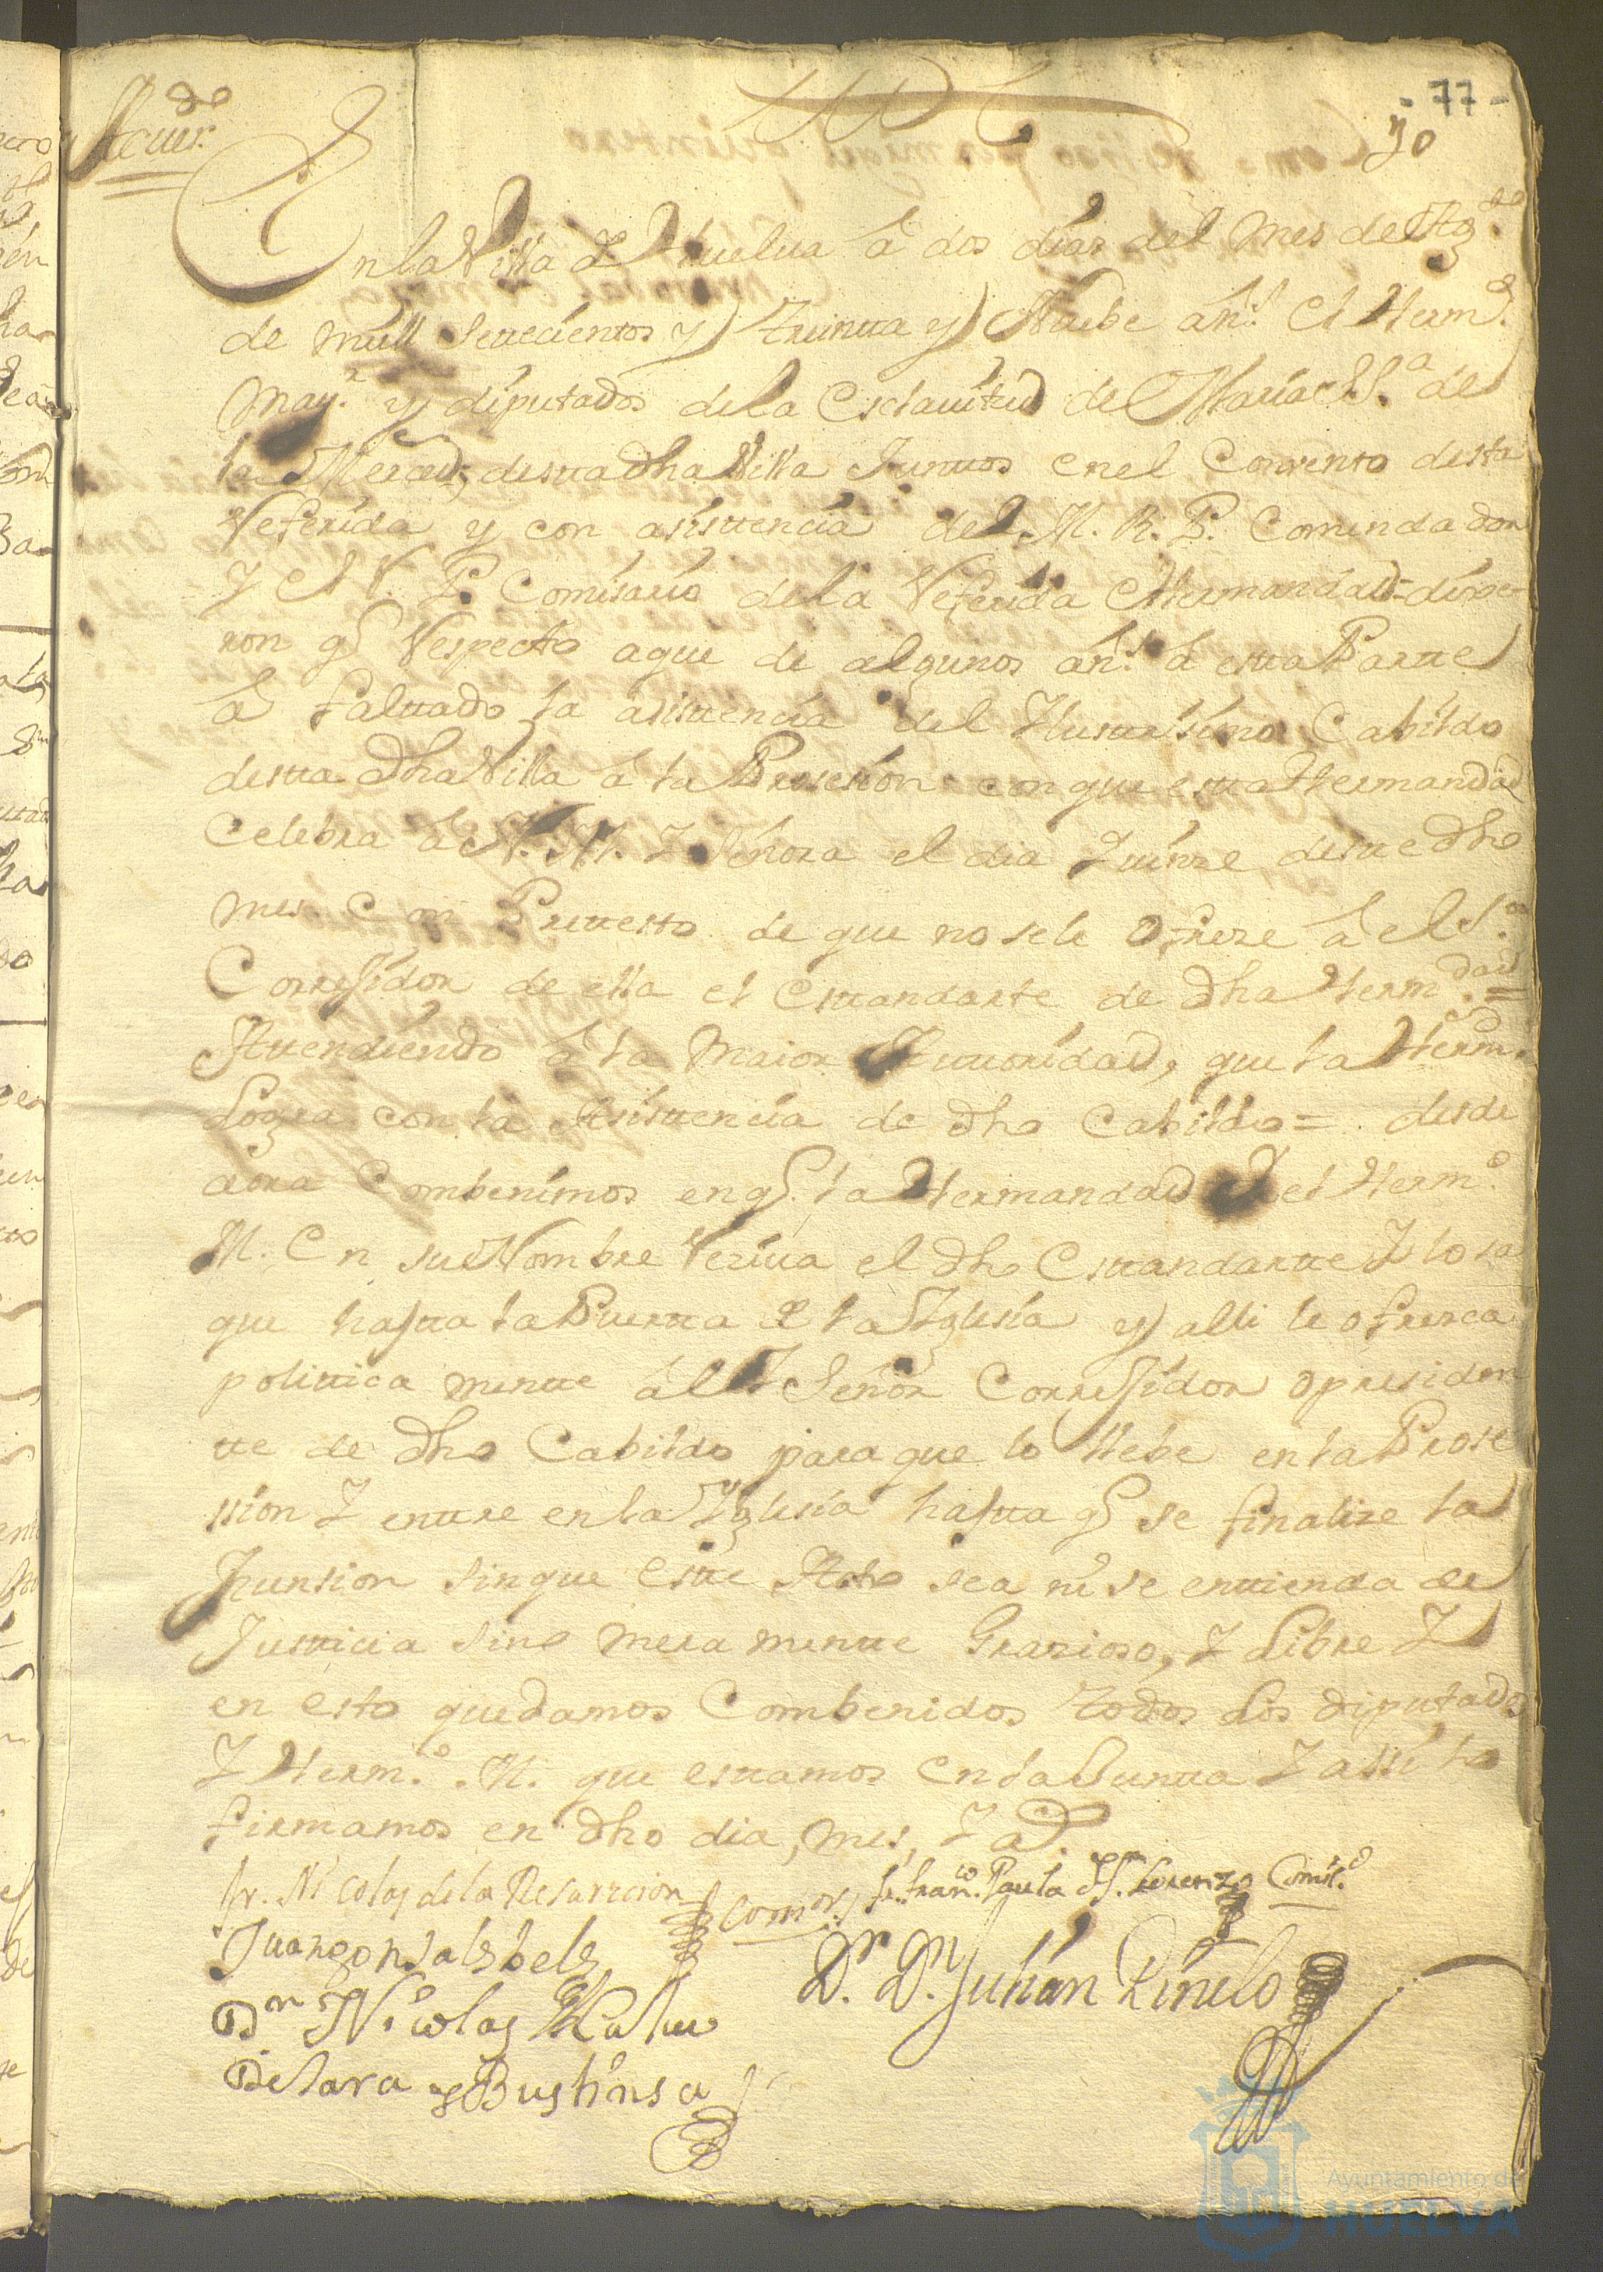 - 77 -
30
Acuer.do
En la Villa de Huelua â dos dias del mes de Ag.to
de mill Settecientos y Treinta y Nuebe añ.s el Herm.o
May.r y diputados de la Esclauitud de Maria SS.a de
la Merced, desta dha Villa Junttos en el Convento desta
Referida y con asisttencia del M. R. P. Comendador
Y el R. P. Comisario de la Referida Hermandad = dixe-
ron q Respecto a que de algunos añ.s â estta Partte
â falttado la asisttencia del Ilusttrisimo Cabildo
destta dha Villa â la Prosesion con que estta Hermandad
Celebra â N. M. Y Señora el dia Quinze destte dho
mes. Con Prettesto de que no se le Ofreze â el S.or
Correjidor de ella el Esttandarte de dha Herm.dad =
Attendiendo â la Maior Auttoridad, que la Herm.d
Logra con la Asisttencia de dho Cabildo = desde
aora Combenimos en q la Hermandad Y el Herm.o
M. En su Nombre Reziua el dho Esttandartte Y lo sa
que hastta la Puertta de la Yglesia y alli le ofresca
polittica mentte âl Señor Correjidor o presiden
tte de dho Cabildo para que lo llebe en la Prose
ssion Y enttre en la Yglesia hastta q se finalize la
Funsion sin que Estte Acto sea ni se enttienda de
Justticia sino mera mentte Grazioso, Y Libre Y
en esto quedamos Combenidos Todos Los Diputados
Y Herm.o M. que esttamos en la Juntta Y assi lo
firmamos en dho dia, mes, Y a.o
fr. Nicolas de la Resurrecion Com.or
fr. Fran.co Paula de S. Lorenzo Comis.o
Juan gonsales bels
D.r D.n Julián Pinelo
D.n Nicolas
De lara y Bustinsa
Ayuntamiento de
HUELVA